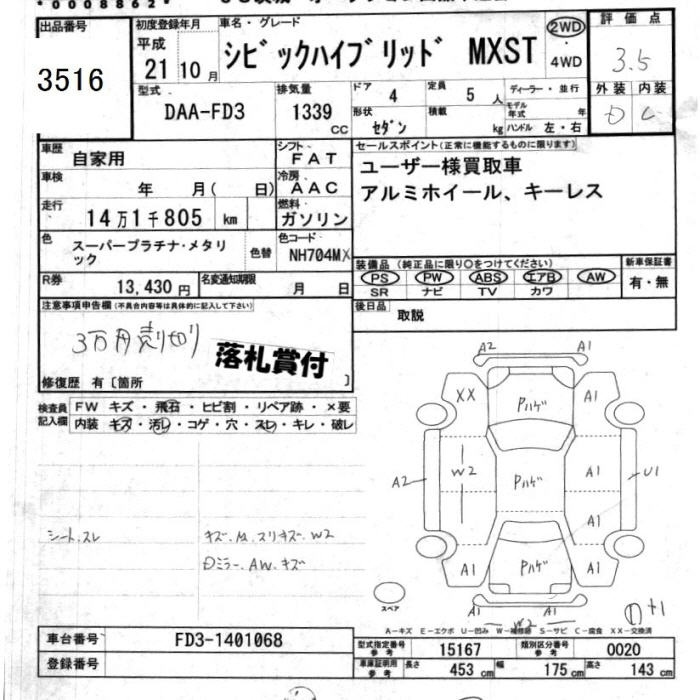 *0008862*
出品番号
3516
初度登録年月
平成
21 10 月
車名・グレード
シビックハイブリッド MXST
2WD
・
4WD
評価点
3.5
外装 内装
D C
型式
DAA-FD3
排気量
1339
CC
ドア 4
形状
セダン
定員
5 人
積載
kg
ディーラー・並行
モデル年式 年
ハンドル 左・右
車歴
自家用
車検
年 月( 日)
走行
14万1千805 km
色
スーパープラチナ・メタリック
色替
R券
13,430 円
名変通知期限
月 日
シフト
FAT
冷房
AAC
燃料
ガソリン
色コード
NH704MX
セールスポイント(正常に機能するものに限ります)
ユーザー様買取車
アルミホイール、キーレス
装備品 (純正品に限り○をつけてください)
PS PW ABS エアB AW
SR ナビ TV カワ
新車保証書
有・無
後日品
取説
注意事項申告欄(不具合内容等は具体的に記入して下さい)
3万円売切り
落札賞付
修復歴 有〔箇所 〕
検査員記入欄
FW キズ・飛石・ヒビ割・リペア跡・×要
内装 キズ・汚レ・コゲ・穴・スレ・キレ・破レ
シート、スレ
キズ、A、スリキズ、W2
Dミラー、AW、キズ
A2 A1
XX Pハゲ A1
A2 W2 Pハゲ A1 U1
A1
A1 Pハゲ A1
A1 A1
W2
スペア
A-キズ E-エクボ U-凹み W-補修跡 S-サビ C-腐食 XX-交換済
車台番号
FD3-1401068
登録番号
型式指定番号 参考
15167
類別区分番号 参考
0020
車庫証明用 参考
長さ 453 cm
幅 175 cm
高さ 143 cm